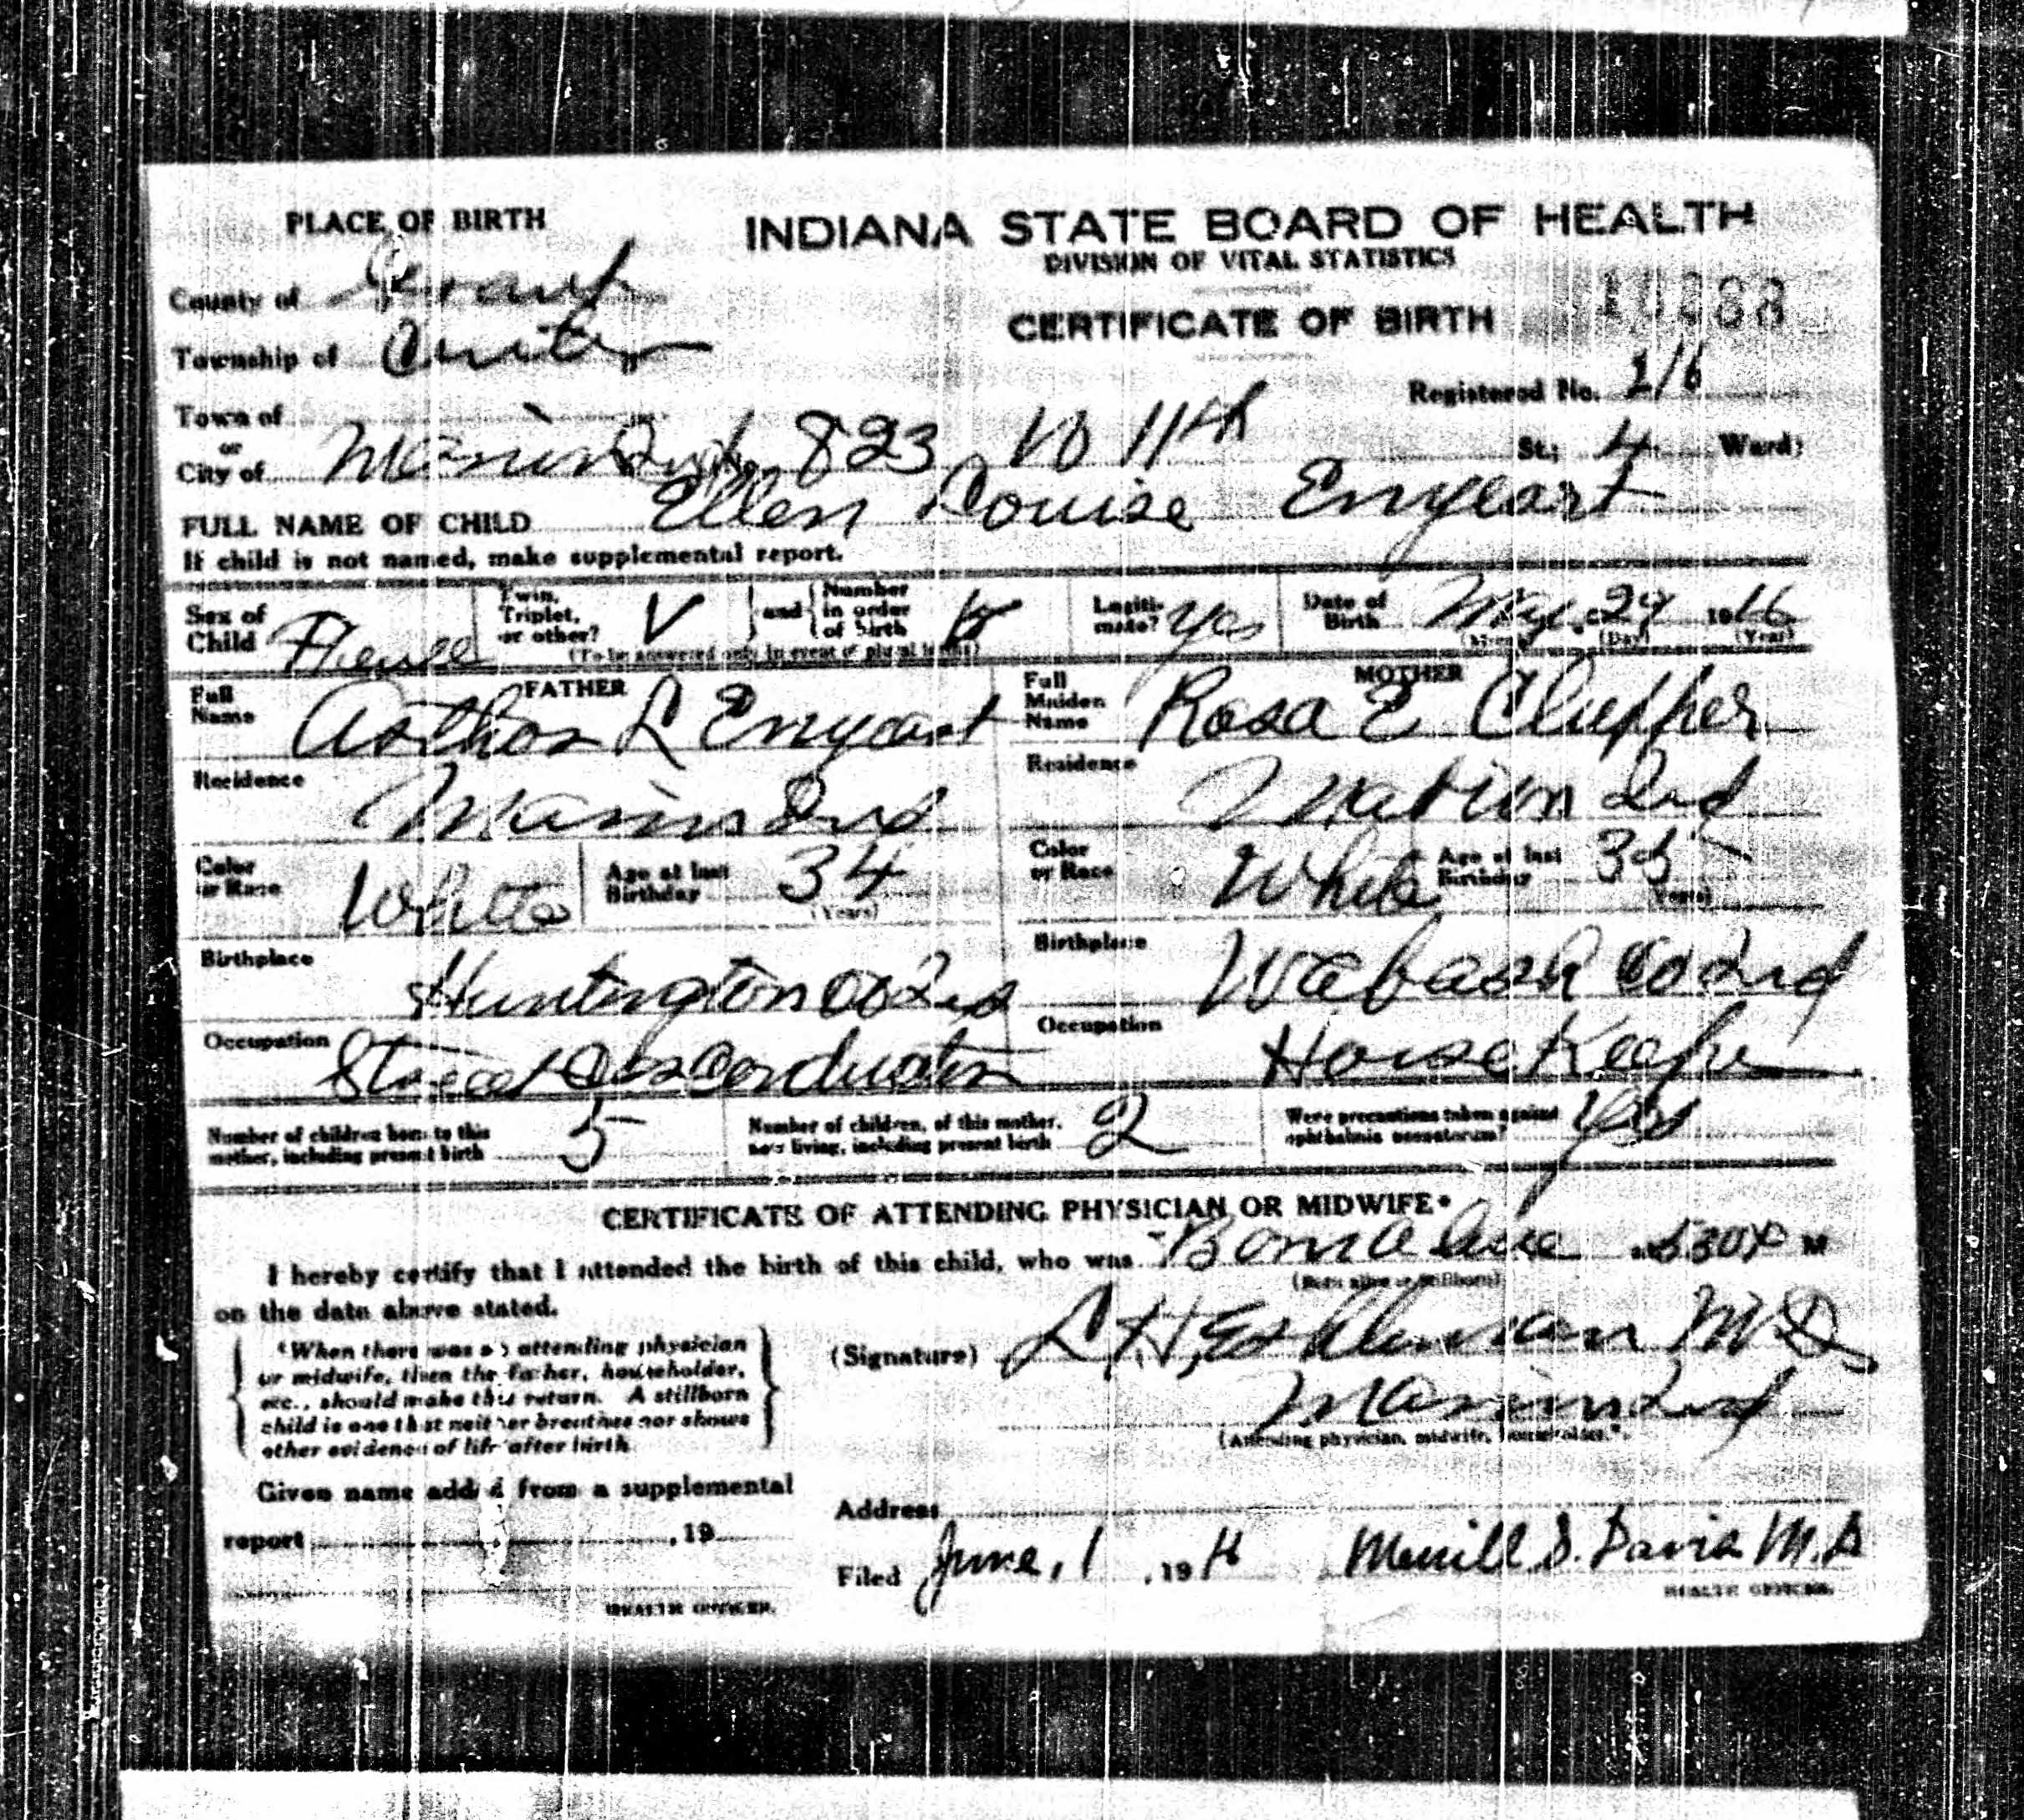 PLACE OF BIRTH
INDIANA STATE BOARD OF HEALTH
DIVISION OF VITAL STATISTICS
County of Grant
CERTIFICATE OF BIRTH
Township of Center
Registered No. 216
Town of
or
City of Marion Ind. 823 W 11th St.; 4 Ward;
FULL NAME OF CHILD Ellen Louise Enyeart
If child is not named, make supplemental report.
Sex of Child Twin, Triplet, or other? and Number in order of birth Legiti-mate? yes Date of Birth May 29 1916
(To be answered only in event of plural births) (Month) (Day) (Year)
FATHER MOTHER
Full Name Arthor L Enyeart Full Maiden Name Rosa E Clupper
Residence Marion Ind Residence Marion Ind
Color or Race White Age at last Birthday 34 (Years) Color or Race White Age at last Birthday 35 (Years)
Birthplace Huntington Co Ind Birthplace Wabash Co Ind
Occupation Street Car Conductor Occupation House Keeper
Number of children born to this mother, including present birth 5 Number of children, of this mother, now living, including present birth 2 Were precautions taken against ophthalmia neonatorum? Yes
CERTIFICATE OF ATTENDING PHYSICIAN OR MIDWIFE*
I hereby certify that I attended the birth of this child, who was Born alive M
(Born alive or Stillborn)
on the date above stated.
*When there was no attending physician
or midwife, then the father, householder,
etc., should make this return. A stillborn
child is one that neither breathes nor shows
other evidence of life after birth
(Signature) L H Eshleman M D
Marion Ind
(Attending physician, midwife, householder.*)
Given name added from a supplemental
report , 19
Address
Filed June, 1, 1916 Merrill S. Davis M.D
HEALTH OFFICER. HEALTH OFFICER.